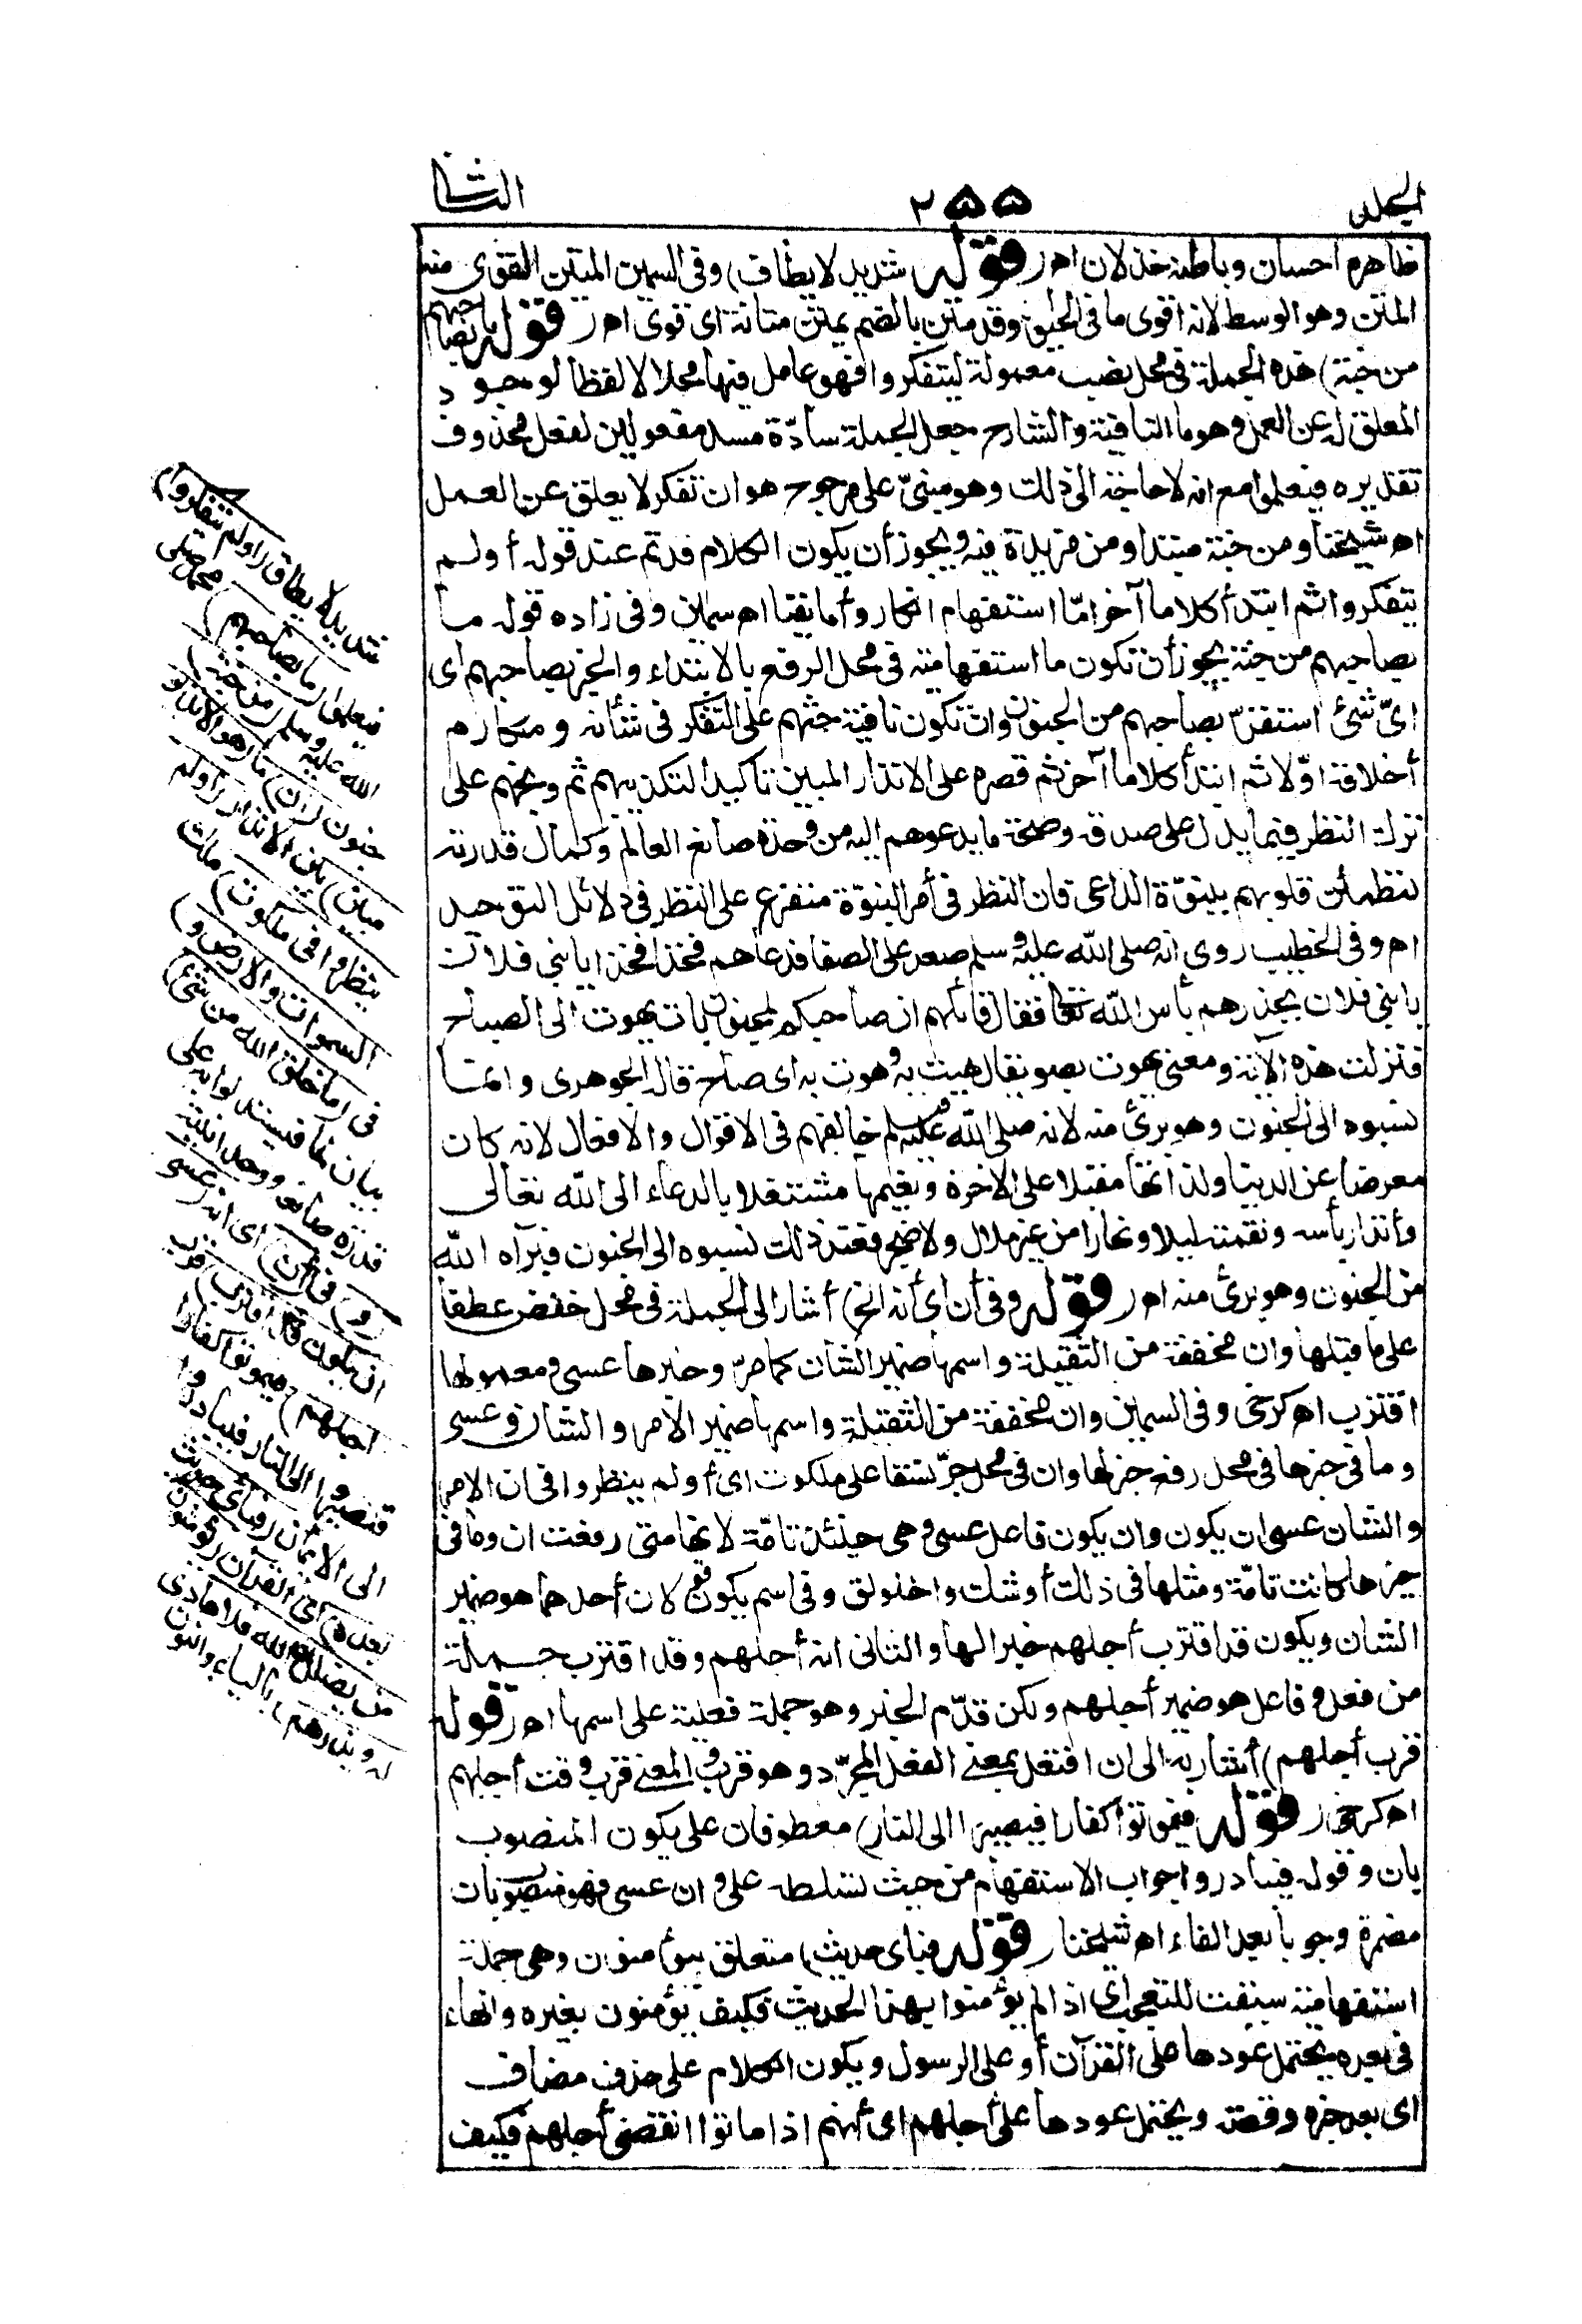 الجلد
٢٥٥
الثانى
ظاهره احسان وباطنه خذلان اهـ (قوله شديد لا يطاق) وفى السمين المتين القوى منه
المتن وهو الوسط لانه اقوى ما فى الحيوان وقد متن بالضم يمتن متانة اى قوى اهـ (قوله ما بصاحبهم
من جنة) هذه الجملة فى محل نصب معمولة ليتفكروا فهو عامل فيها محلا لا لفظا لوجود
المعلق له عن العمل وهو ما النافية والشارح جعل الجملة سادّة مسد مفعولين لفعل محذوف
تقديره فيعلموا مع انه لا حاجة الى ذلك وهو مبنىّ على مرجوح هو ان تفكر لا يعلق عن العمل
اهـ شيخنا ومن جنة مبتدأ ومن مزيدة فيه ويجوز أن يكون الكلام قد تم عند قوله أولم
يتفكروا ثم ابتدأ كلاما آخر امّا استفهام انكار وأما نفيا اهـ سمين وفى زاده قوله ما
بصاحبهم من جنة يجوز أن تكون ما استفهامية فى محل الرفع بالابتداء والخبر بصاحبهم اى
اىّ شئ استقرّ بصاحبهم من الجنون وان تكون نافية حثهم على التفكر فى شأنه ومكارم
أخلاقه اوّلا ثم ابتدأ كلاما آخر ثم قصره على الانذار المبين تأكيدا لتكذيبهم ثم وبخهم على
ترك النظر فيما يدل على صدقه وصحة ما يدعوهم اليه من وحدة صانع العالم وكمال قدرته
لتطمئن قلوبهم بنبوّة الداعى فان النظر فى أمر النبوّة متفرع على النظر فى دلائل التوحيد
اهـ وفى الخطيب روى انه صلى الله عليه وسلم صعد على الصفا فدعاهم فخذا فخذا يا بنى فلان
يا بنى فلان يحذرهم بأس الله تعالى فقال قائلهم ان صاحبكم لمجنون بات يهوت الى الصباح
فنزلت هذه الآية ومعنى يهوت يصوت يقال هيت به وهوت به اى صاح قاله الجوهرى وانما
نسبوه الى الجنون وهو برئ منه لانه صلى الله عليه وسلم خالفهم فى الاقوال والافعال لانه كان
معرضا عن الدنيا ولذاتها مقبلا على الاخرة ونعيمها مشتغلا بالدعاء الى الله تعالى
وأنذار بأسه ونقمته ليلا ونهارا من غير ملال ولا ضجر فعند ذلك نسبوه الى الجنون فبرأه الله
من الجنون وهو برئ منه اهـ (قوله وفى أن أى أنه الخ) أشار الى الجملة فى محل خفض عطفا
على ما قبلها وان مخففة من الثقيلة واسمها ضمير الشان كما مرّ وخبرها عسى ومعمولها
اقترب اهـ كرخى وفى السمين وان مخففة من الثقيلة واسمها ضمير الامر والشان وعسى
وما فى خبرها فى محل رفع خبر لها وان فى محل جرّ نسقا على ملكوت اى أولم ينظروا فى ان الامر
والشان عسى ان يكون وان يكون فاعل عسى وهى حينئذ تامّة لانها متى رفعت ان وما فى
حيزها كانت تامّة ومثلها فى ذلك أوشك واخلولق وفى اسم يكون قولان أحدهما هو ضمير
الشان ويكون قد اقترب أجلهم خبرا لها والثانى انه أجلهم وقد اقترب جملة
من فعل وفاعل هو ضمير أجلهم ولكن قدّم الخبر وهو جملة فعلية على اسمها اهـ (قوله
قرب أجلهم) أشار به الى ان افتعل بمعنى الفعل المجرّد وهو قرب والمعنى قرب وقت أجلهم
اهـ كرخى (قوله فيموتوا كفارا فيصيروا الى النار) معطوفان على يكون المنصوب
بان وقوله فيبادروا جواب الاستفهام من حيث تسلطه على وان عسى فهو منصوب بان
مضمرة وجوبا بعد الفاء اهـ شيخنا (قوله فبأى حديث) متعلق بيؤمنون وهى جملة
استفهامية سيقت للتعجب اى اذا لم يؤمنوا بهذا الحديث فكيف يؤمنون بغيره والهاء
فى بعده يحتمل عودها على القرآن أو على الرسول ويكون الكلام على حذف مضاف
اى بعد خبره وقصته ويحتمل عودها على أجلهم اى أنهم اذا ماتوا انقضى أجلهم فكيف
شديد لا يطاق (اولم يتفكروا)
فيعلموا (ما بصاحبهم) محمد صلى
الله عليه وسلم (من جنة)
جنون (ان) ما (هو الا نذير
مبين) بين الانذار (اولم
ينظروا فى ملكوت) ملك
السموات والارض و)
فى (ما خلق الله من شئ)
بيان لما فيستدلوا به على
قدرة صانعه ووحدانيته
(و) فى (أن) اى انه (عسى
ان يكون قد اقترب) قرب
اجلهم) فيموتوا كفارا
فيصيروا الى النار فيبادروا
الى الايمان (فبأى حديث
بعده) اى القرآن (يؤمنون
من يضلل الله فلا هادى
له ويذرهم) بالياء والنون